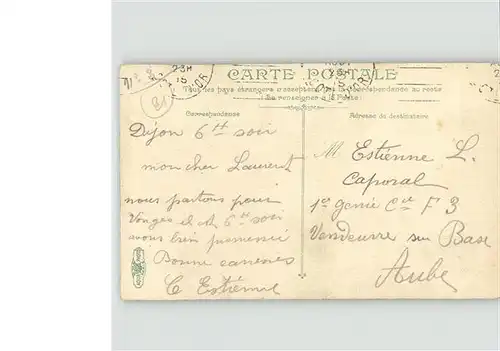 CARTE POSTALE
Tous les pays étrangers n'acceptent pas la correspondance au recto
(Se renseigner à la Poste)
Correspondance
Adresse du destinataire
Dijon 6 soir
mon cher Laurent
nous partons pour
Vonges 6 soir
avons bien
Bonne
E Estienne
M. Estienne L.
Caporal
1er génie Cie F 3
Vendeuvre sur Base
Aube